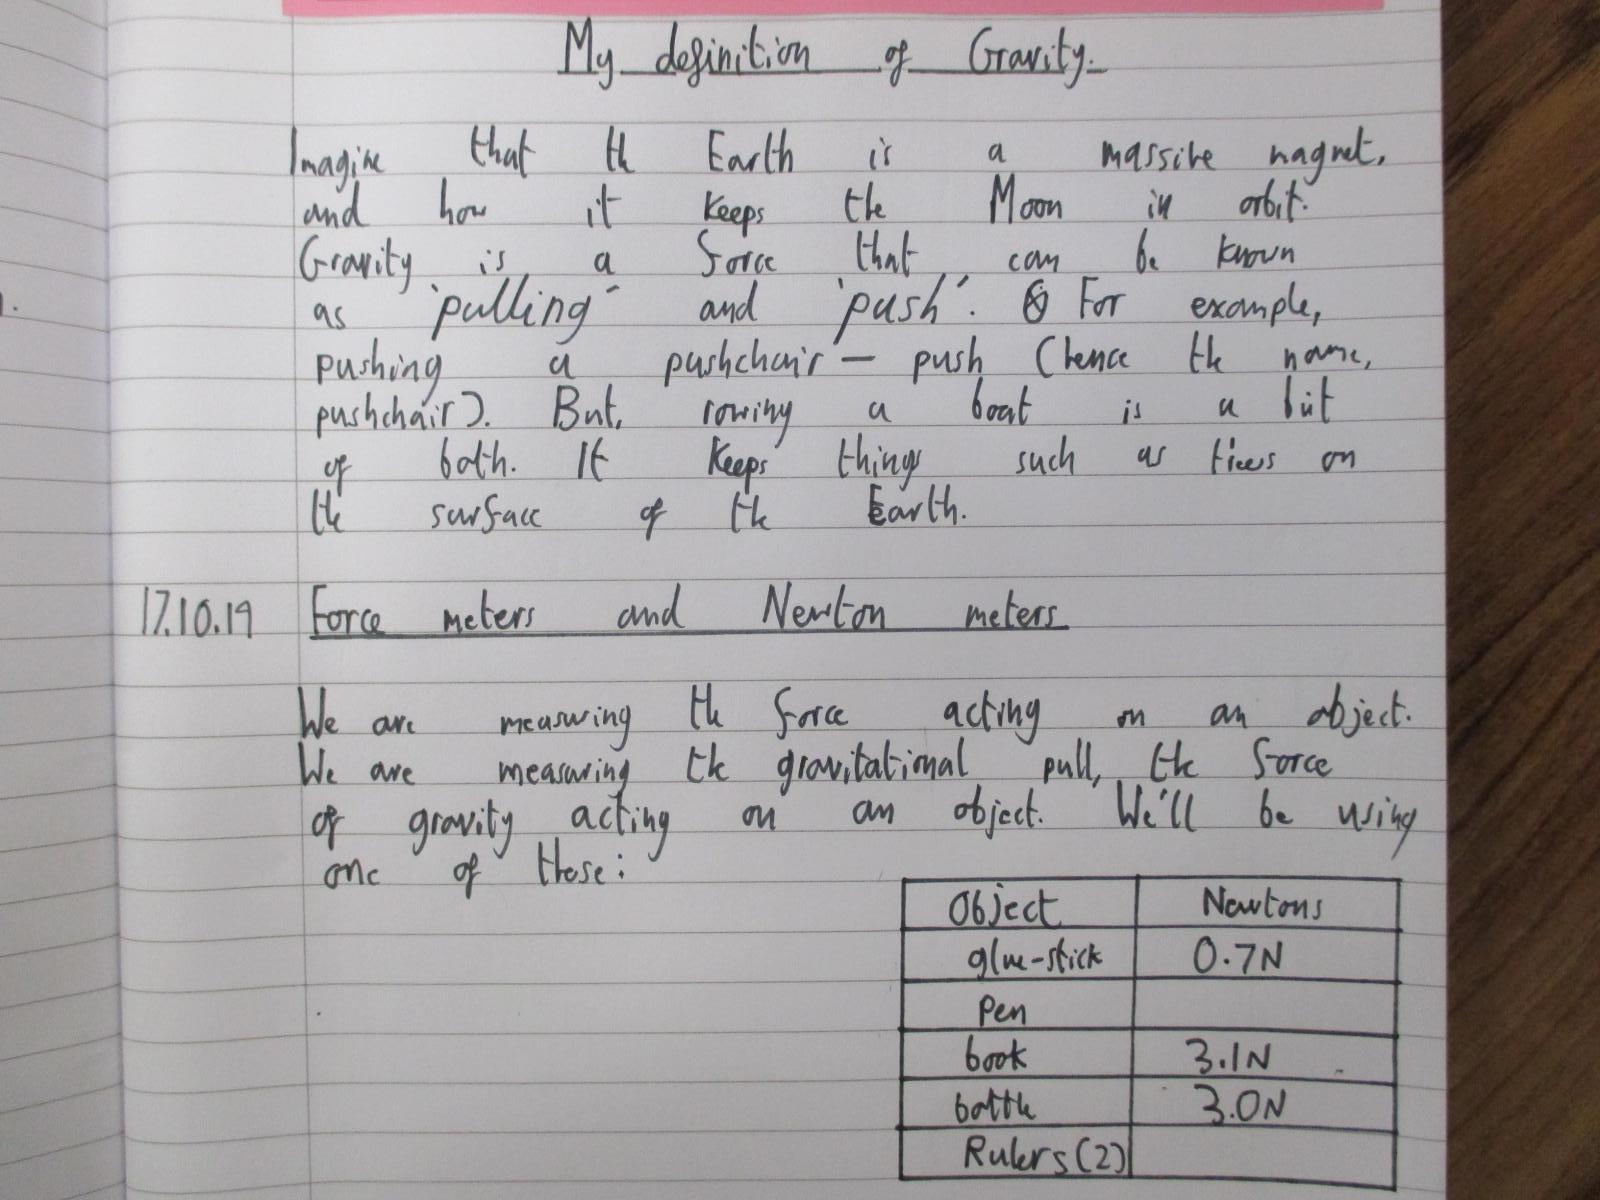 My definition of Gravity.
Imagine that the Earth is a massive magnet,
and how it keeps the Moon in orbit.
Gravity is a force that can be known
as 'pulling' and 'push'. For example,
pushing a pushchair - push (hence the name,
pushchair). But, rowing a boat is a bit
of both. It keeps things such as trees on
the surface of the Earth.
17.10.19 Force meters and Newton meters
We are measuring the force acting on an object.
We are measuring the gravitational pull, the force
of gravity acting on an object. We'll be using
one of these:
Object Newtons
glue-stick 0.7N
Pen
book 3.1N
bottle 3.0N
Rulers (2)